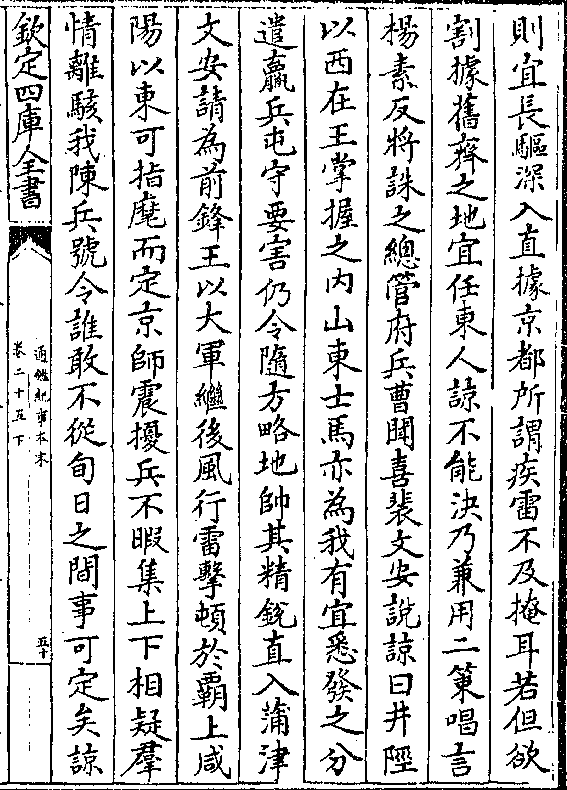 則宜長驅深入直據京都所謂疾雷不及掩耳若但欲
割據舊齊之地宜任東人諒不能決乃兼用二策唱言
楊素反將誅之總管府兵曹聞喜裴文安說諒曰井陘
以西在王掌握之內山東士馬亦為我有宜悉發之分
遣羸兵屯守要害仍令隨方略地帥其精銳直入蒲津
文安請為前鋒王以大軍繼後風行雷擊頓於霸上咸
陽以東可指麾而定京師震擾兵不暇集上下相疑羣
情離駭我陳兵號令誰敢不從旬日之間事可定矣諒
欽定四庫全書
通鑑紀事本末
卷二十五下
五十